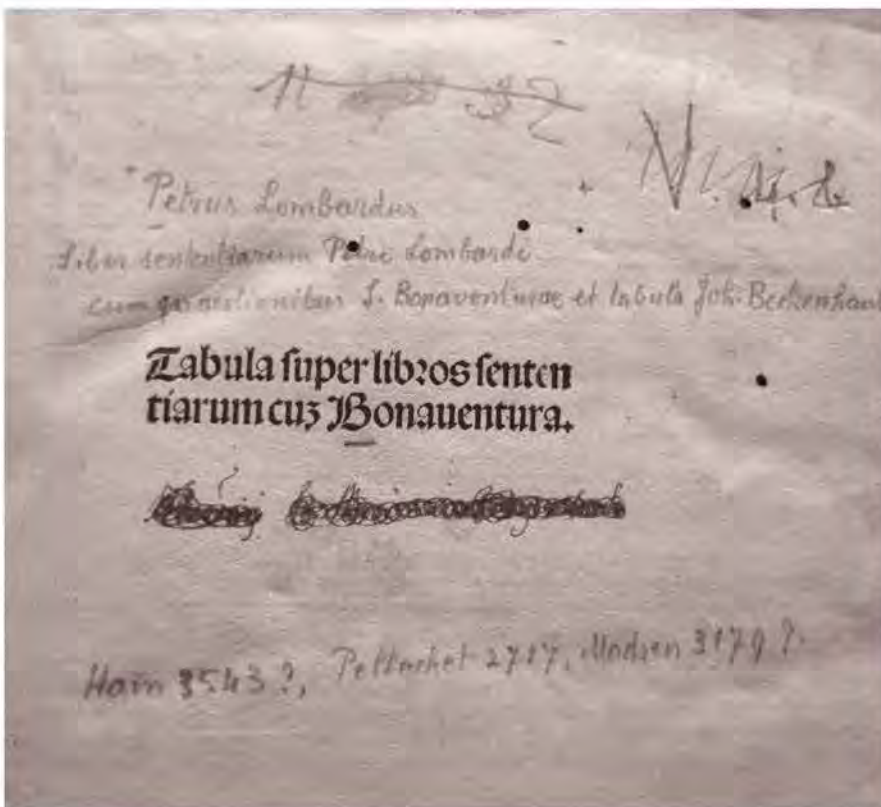 32
Petrus Lombardus
Liber sententiarum Petri Lombardi
cum quaestionibus S. Bonaventurae et tabula Joh. Beckenhaub
Tabula ſuper libꝛos ſenten
tiarum cuʒ Bonauentura.
Hain 3543?, Pellechet 2717, Madsen 3179?.